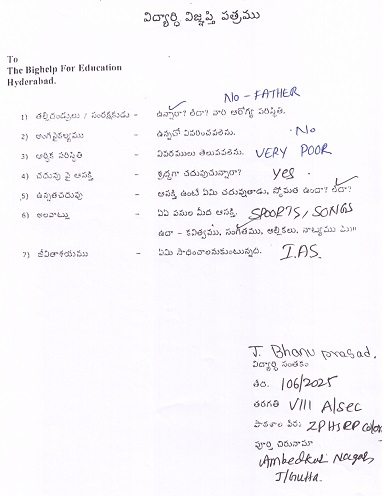 విద్యార్ధి విజ్ఞప్తి పత్రము
To
The Bighelp For Education
Hyderabad.
No - FATHER
1) తల్లిదండ్రులు / సంరక్షకుడు - ఉన్నారా? లేదా? వారి ఆరోగ్య పరిస్థితి.
2) అంగవైకల్యము - ఉన్నచో వివరించవలెను. No
3) ఆర్ధిక పరిస్థితి - వివరములు తెలుపవలెను. VERY POOR
4) చదువు పై ఆసక్తి - శ్రద్ధగా చదువుచున్నారా? Yes.
5) ఉన్నతచదువు - ఆసక్తి ఉంటే ఏమి చదువుతాడు, స్తోమత ఉందా? లేదా?
6) అలవాట్లు - ఏఏ పనుల మీద ఆసక్తి. SPORTS, SONGS
ఉదా - కవిత్వము, సంగీతము, ఆటలు, నాట్యము
7) జీవితాశయము - ఏమి సాధించాలనుకుంటున్నది. I.A.S.
J. Bhanu prasad.
విద్యార్ధి సంతకం
తేది. 106/2025
తరగతి VIII A/sec
పాఠశాల పేరు ZPHS RP Colony
పూర్తి చిరునామా
Ambedkar Nagar
J/Gutta.